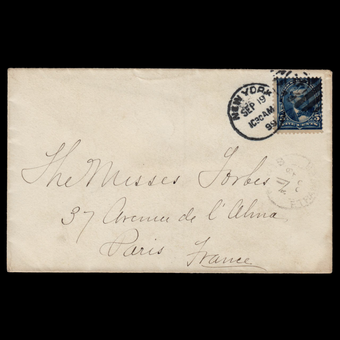 NEW YORK
SEP 19
1030AM
99
5
The Misses Forbes
37 Avenue de l'Alma
Paris
France